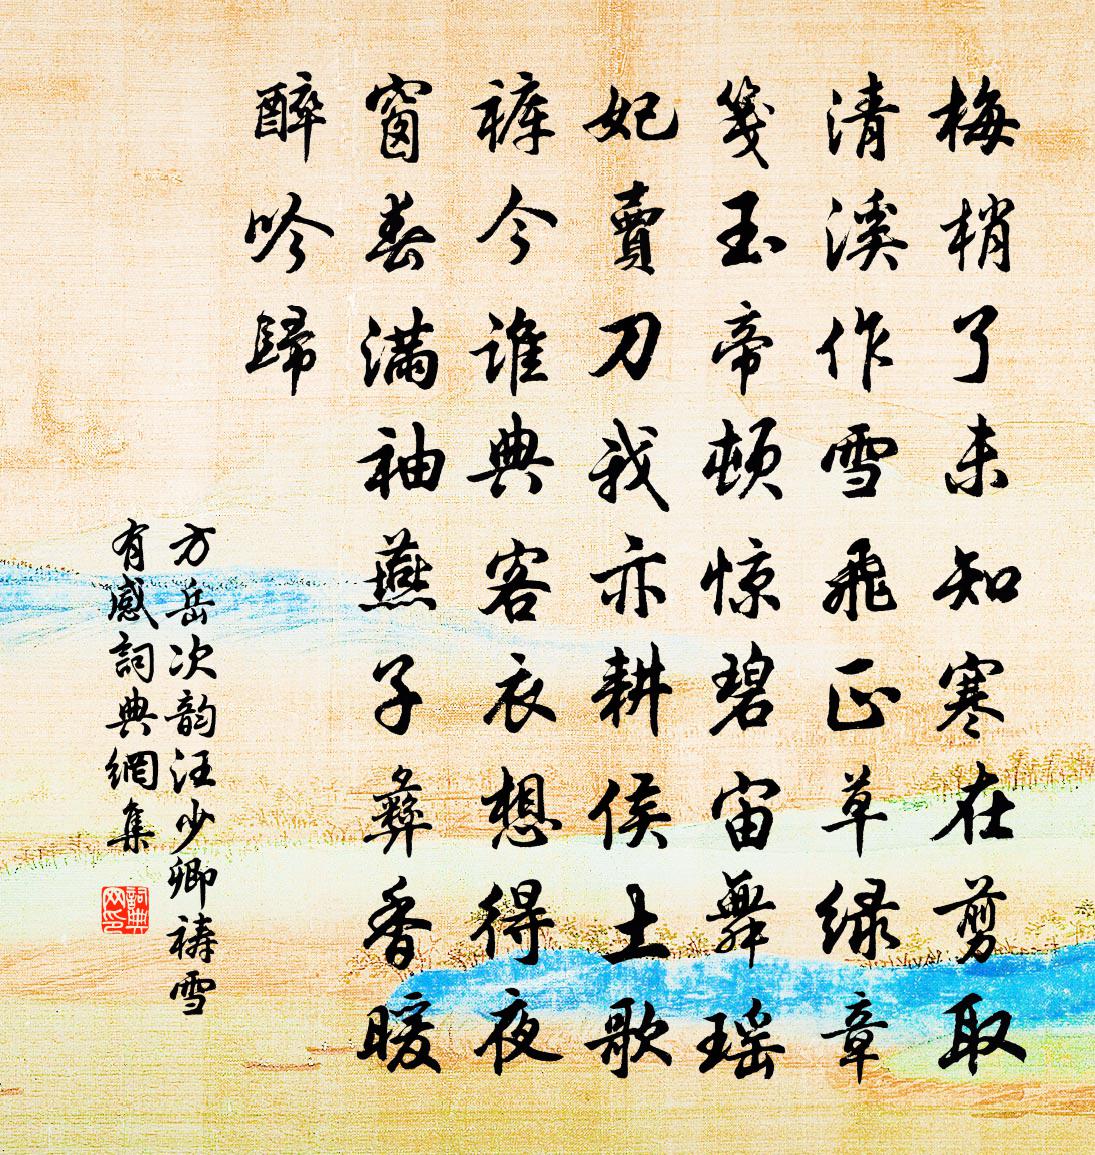 梅梢了未知寒在剪取
清溪作雪飛正草绿章
箋玉帝頓惊碧宙舞瑶
妃賣刀我亦耕侯土歌
裤今誰典客衣想得夜
窗春满袖燕子彝香暖
醉吟歸
方岳次韵汪少卿祷雪
有感詞典網集
詞典网印